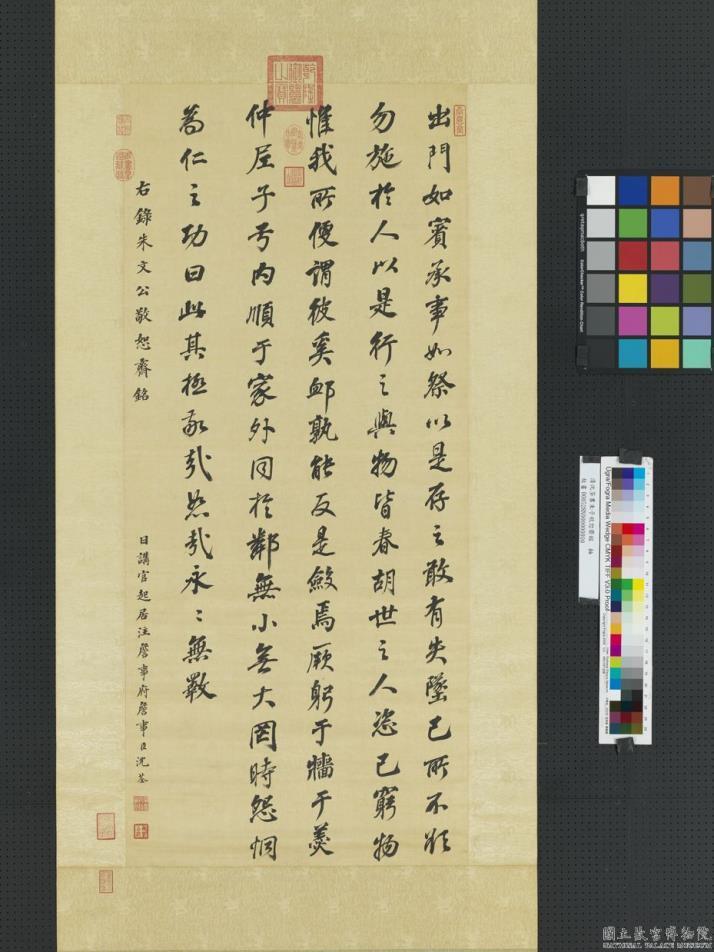 出門如賓承事如祭以是存之敢有失墜己所不欲
勿施於人以是行之與物皆春胡世之人恣己窮物
惟我所便謂彼奚卹孰能反是斂焉厥躬于牆于羹
仲尼子弓內順于家外同於鄰無小無大罔時怨恫
為仁之功曰此其極敬哉恕哉永〻無斁
右錄朱文公敬恕齋銘
日講官起居注詹事府詹事臣沈荃
gretagmacbeth
ColorChecker Color Rendition Chart
Ugra/Fogra Media Wedge CMYK TIFF V3.0 Proof
國立故宮博物院
NATIONAL PALACE MUSEUM